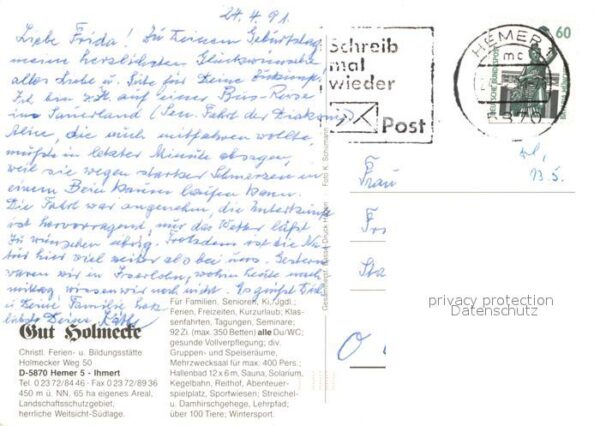 24.4.91
Liebe Frida! Zu Deinem Geburtstag
meine herzlichsten Glückwünsche
alles Liebe u. Gute für Deine
Ich bin z.Zt. auf einer Bus-Reise
im Sauerland (Sen. Fahrt der Diakonie)
die mich mitfahren wollte,
mußte in letzter Minute absagen,
weil sie wegen starker Schmerzen in
einem Bein kaum laufen kann.
Die Fahrt war angenehm, die Unterkunft
ist hervorragend, nur das Wetter läßt
zu wünschen übrig. Trotzdem ist die Na-
tur hier viel weiter als bei uns. Gestern
waren wir in Iserlohn, wohin heute nach-
mittag wissen wir noch nicht. Es grüßt Dich
u. Deine Familie herz-
lichst Deine Käthe
Gut Holmecke
Christl. Ferien- u. Bildungsstätte
Holmecker Weg 50
D-5870 Hemer 5 - Ihmert
Tel. 0 23 72/84 46 · Fax 0 23 72/89 36
450 m ü. NN, 65 ha eigenes Areal,
Landschaftsschutzgebiet,
herrliche Weitsicht-Südlage.
Für Familien, Senioren, Ki./Jgdl.;
Ferien, Freizeiten, Kurzurlaub; Klas-
senfahrten, Tagungen, Seminare;
92 Zi. (max. 350 Betten) alle Du/WC;
gesunde Vollverpflegung; div.
Gruppen- und Speiseräume,
Mehrzwecksaal für max. 400 Pers.;
Hallenbad 12 x 6 m, Sauna, Solarium,
Kegelbahn, Reithof, Abenteuer-
spielplatz, Sportwiesen; Streichel-
u. Damhirschgehege, Lehrpfad;
über 100 Tiere; Wintersport.
Foto K. Schumann
Schreib
mal
wieder
Post
HEMER 1
mc
5870
60
DEUTSCHE BUNDESPOST
13.5.
Frau
privacy protection
Datenschutz